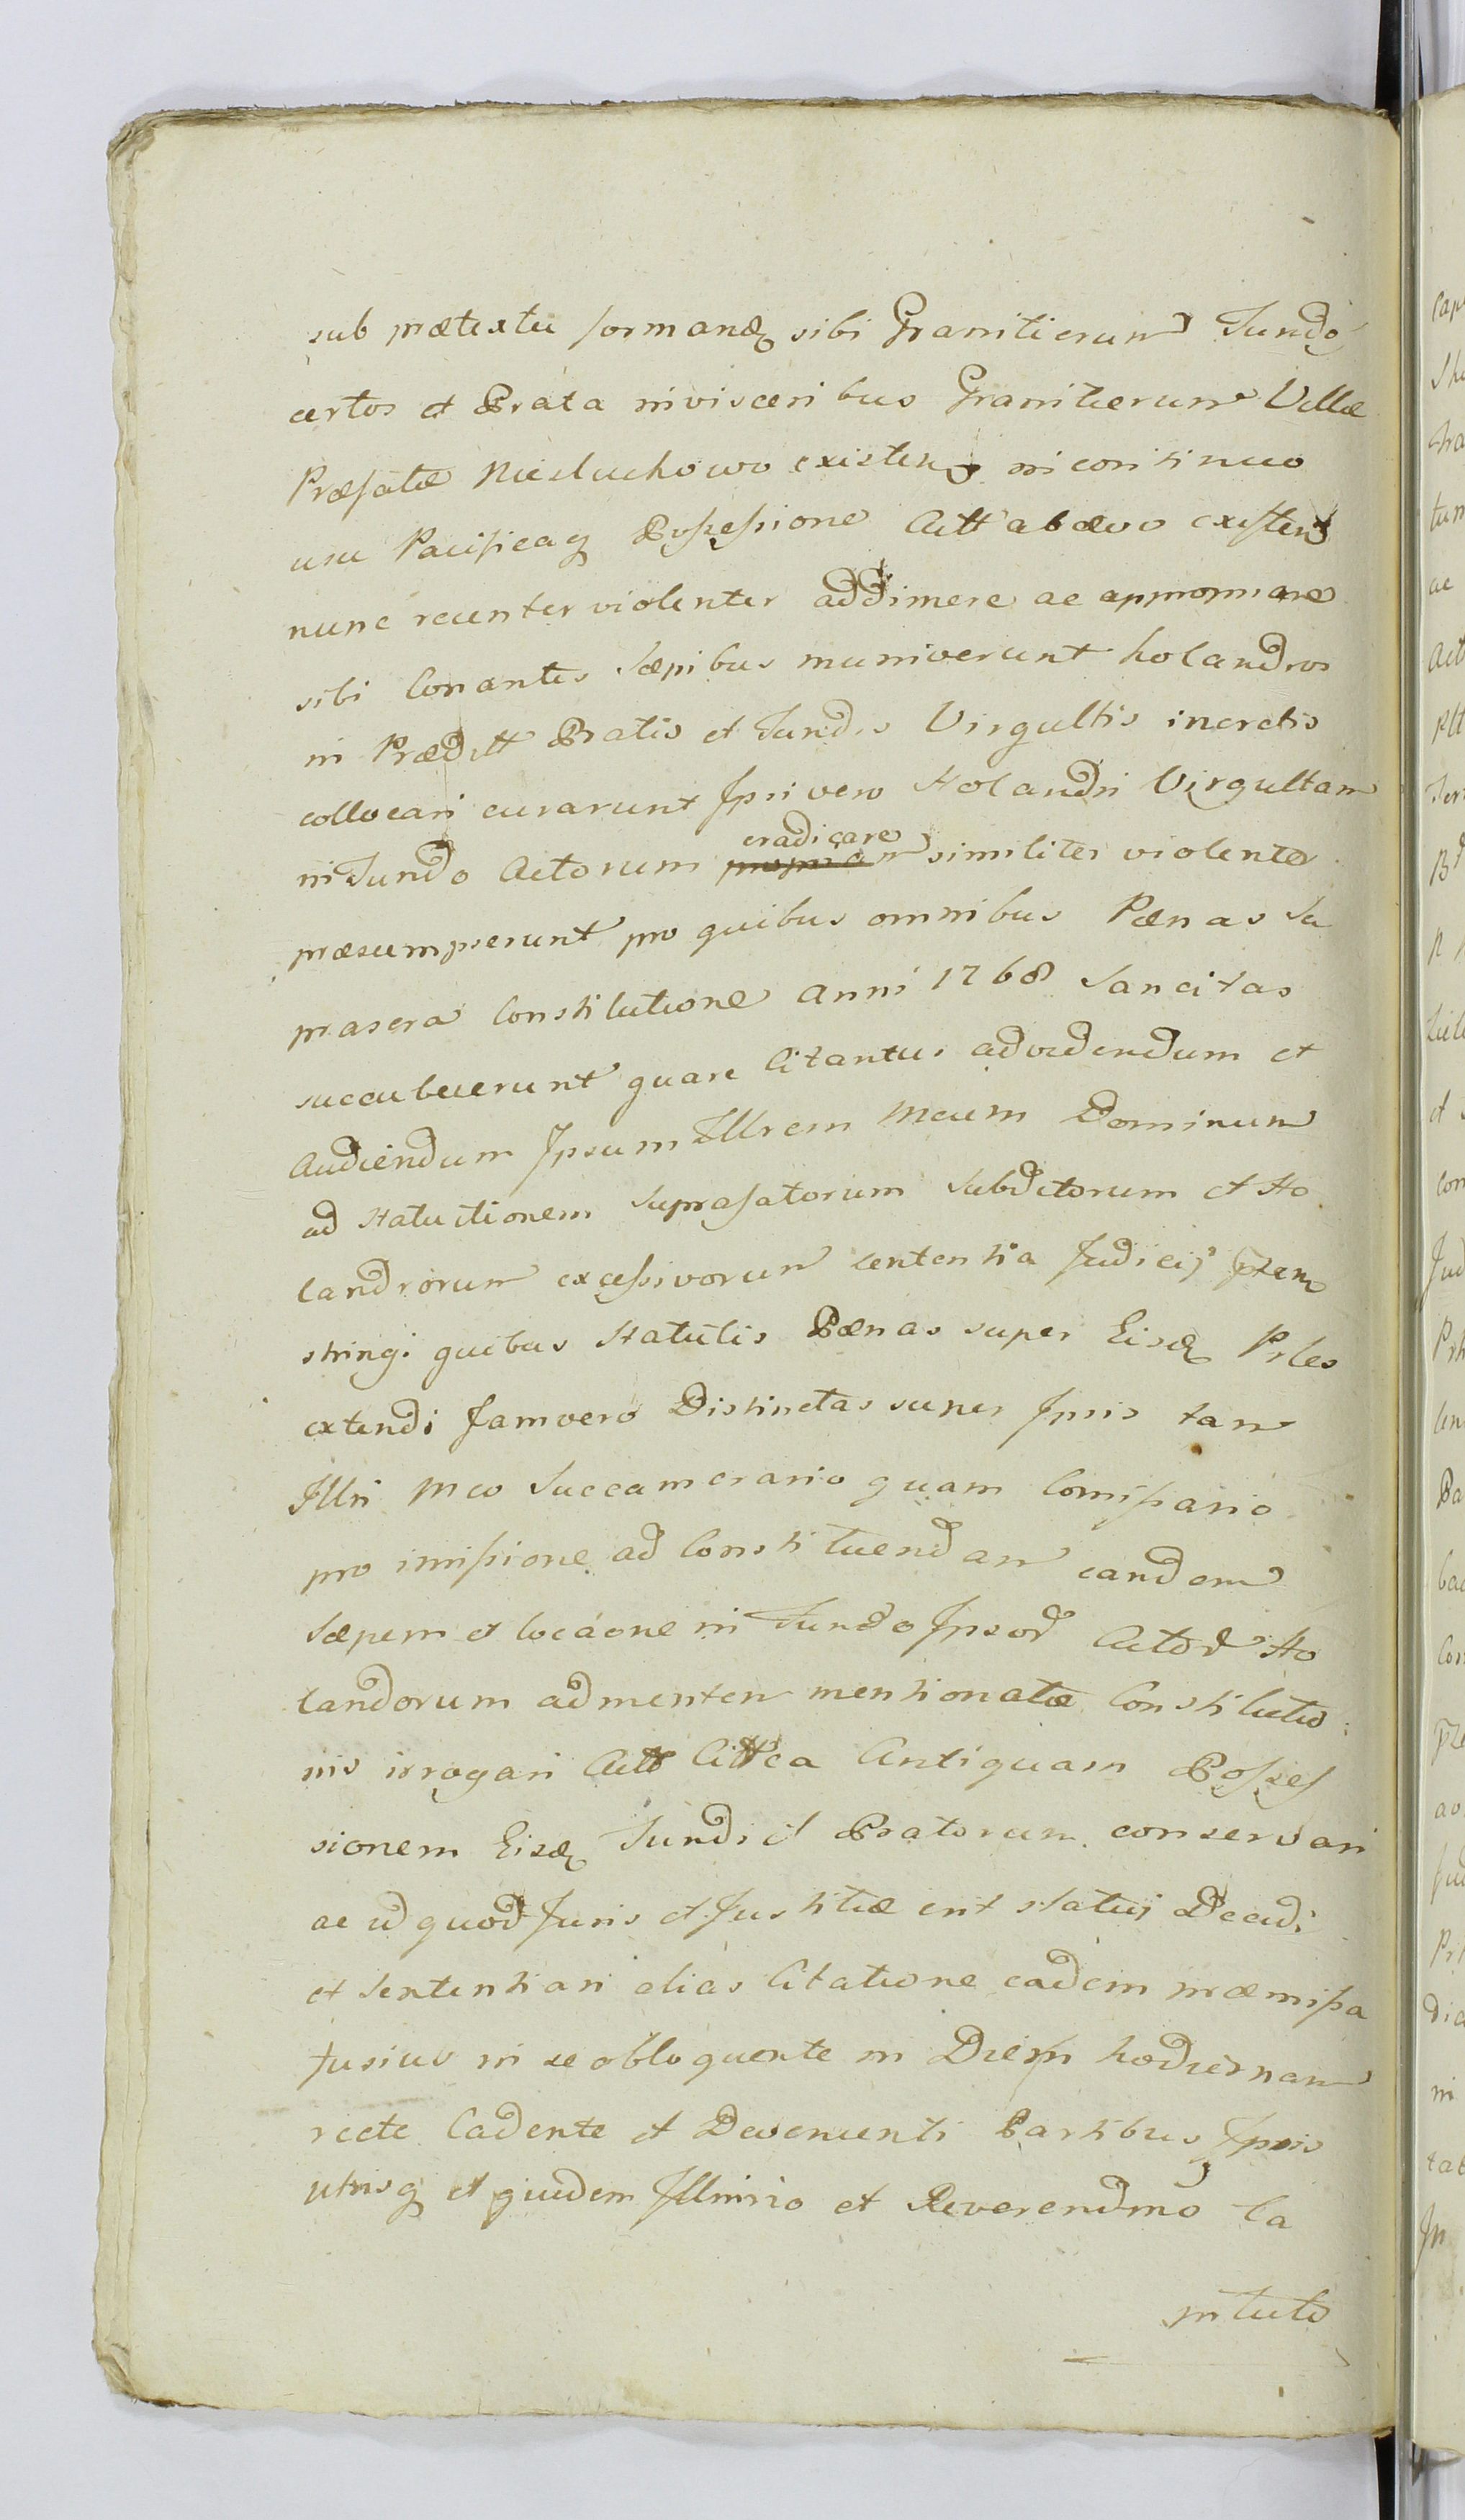 sub prætextu formandą sibi Granitierum Fundos
certos et Prata in visceribus Granitierum Villæ
Præfatæ Niesluchowo existen in continuo
usu Pacificaq Possessione Actt ab ævo existen
nunc recenter violenter addimere ac appropriare
sibi Conantes Sæpibus muniverunt holandros
in Prædictt Pratis et Fundis Virgultis incretis
collocari curarunt Ipsi vero Holandri Virgultam
in Fundo Actorum eradicare similiter violenter
præsumpserunt pro quibus omnibus Pænas Su
prasera Constitutione Anni 1768 Sancitas
succubuerunt quare Citantur ad videndum et
Audiendum Ipsum Illrem Meum Dominum
ad statuitionem Suprafatorum Subditorum et Ho
landrorum excessivorum sententia Judicij Pzem
stringi quibus Statutis Pænas super Eisdę Prles
extendi Jam vero Distinctas super Ipsis tam
Illri Meo Succamerario quam Comissario
pro imissione ad Constituendam eandem
Sæpem et locaone in Fundo Ipsor Actor Ho
landorum ad mentem mentionatæ Constitutio
nis irrogari Actt Citt ca Antiquam Posses
sionem Eisdę Fundi et Pratorum conservari
ac id quod Juris et Justitiæ erit statui Decidi
et Sententiari alias Citatione eadem præmissa
fusius in se obloquente in Diem hodiernam
recte Cadente et Devenienti Partibus Ipsis
utrisq et quidem Illmio et Reverendmo Ca
pitulo